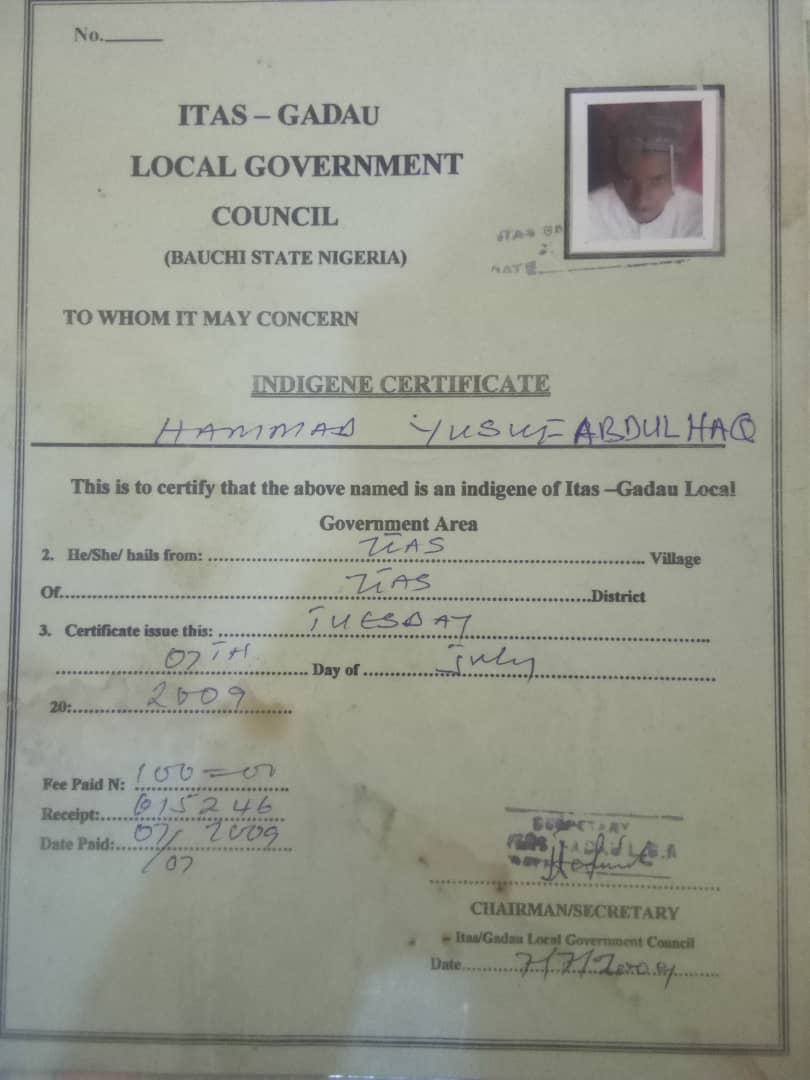 No.______
ITAS – GADAU
LOCAL GOVERNMENT
COUNCIL
(BAUCHI STATE NIGERIA)
ITAS
DATE
TO WHOM IT MAY CONCERN
INDIGENE CERTIFICATE
HAMMAD YUSUF ABDULHAQ
This is to certify that the above named is an indigene of Itas –Gadau Local
Government Area
2. He/She/ hails from: ITAS Village
Of ITAS District
3. Certificate issue this: TUESDAY
07TH Day of July
20: 2009
Fee Paid N: 100=00
Receipt: 015246
Date Paid: 07/07 2009
SECRETARY
ITAS GADAU L.G.A
CHAIRMAN/SECRETARY
Itas/Gadau Local Government Council
Date 7/7/2009